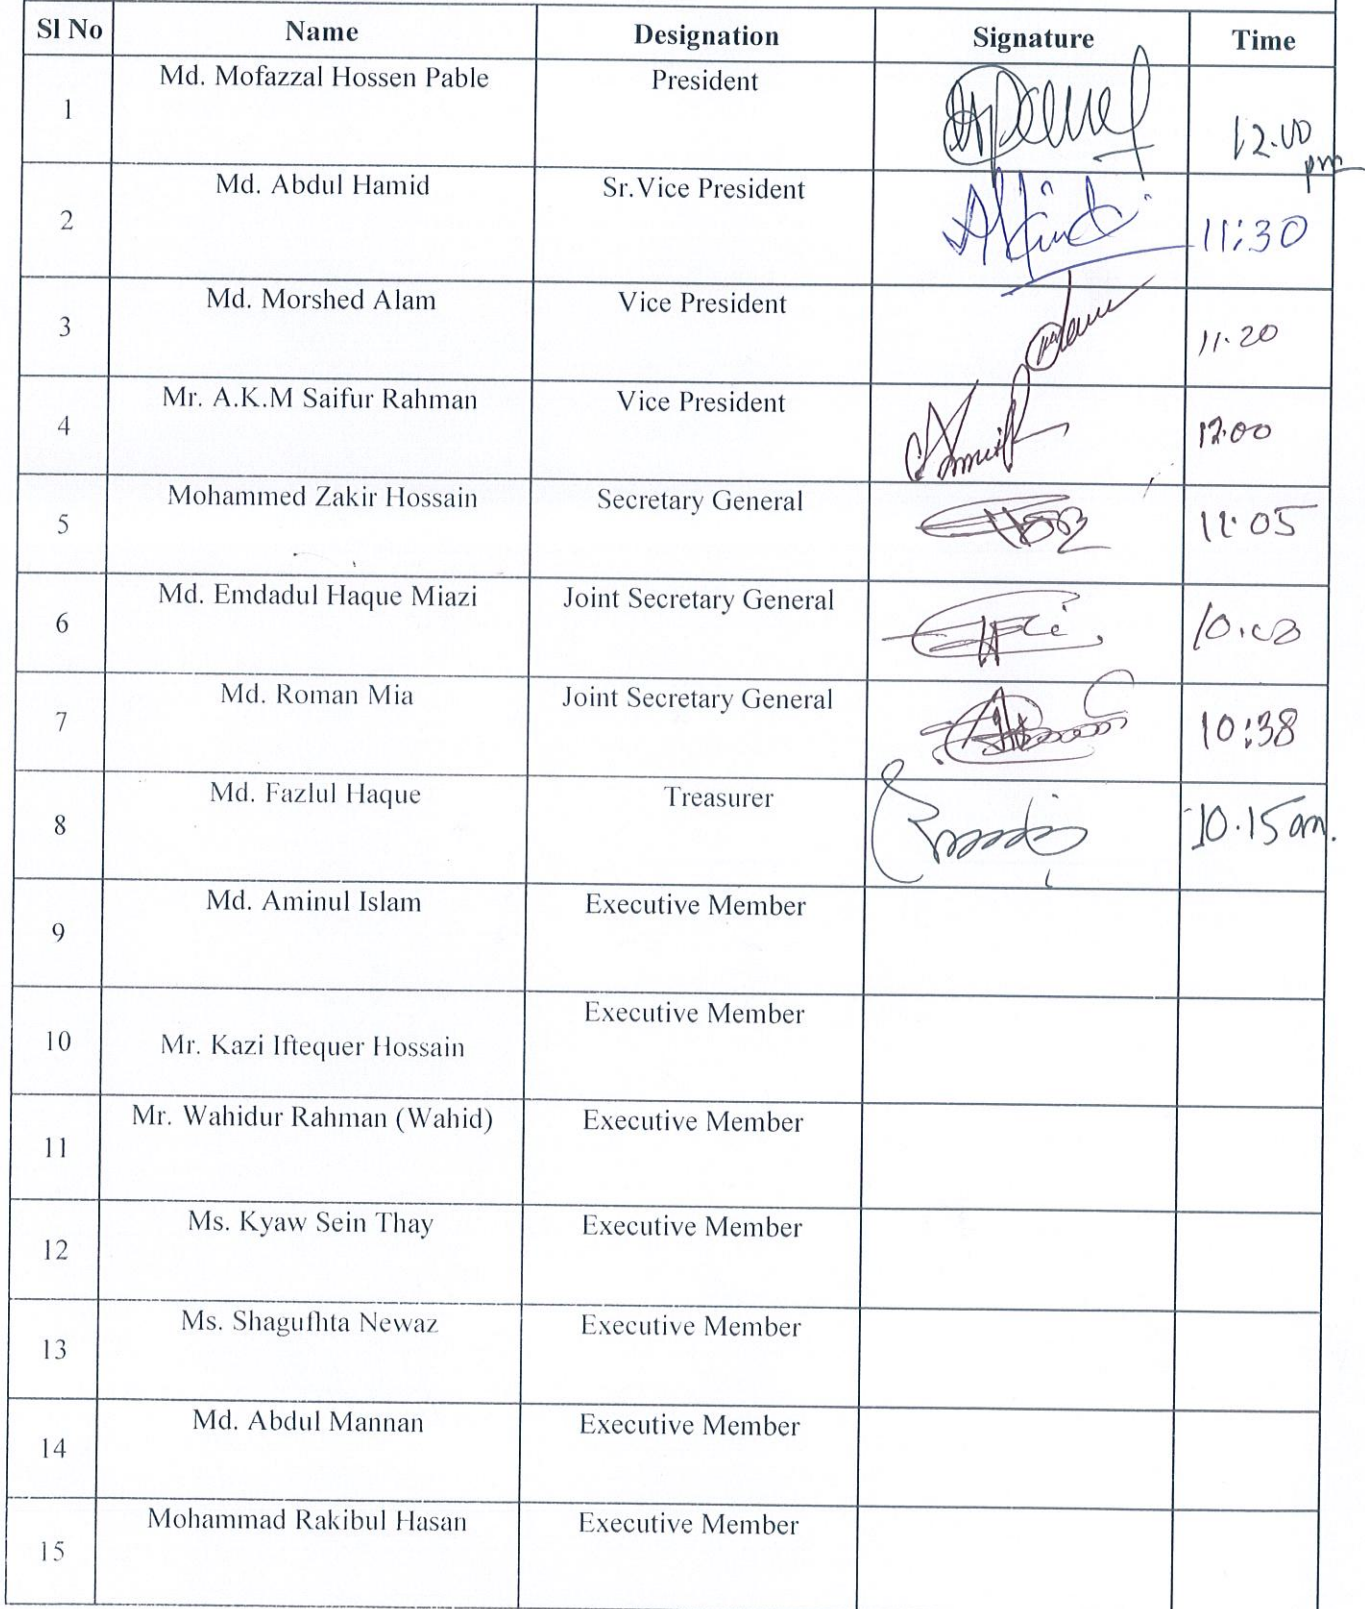 Sl No Name Designation Signature Time
1 Md. Mofazzal Hossen Pable President 12.00 pm
2 Md. Abdul Hamid Sr.Vice President 11:30
3 Md. Morshed Alam Vice President 11.20
4 Mr. A.K.M Saifur Rahman Vice President 12.00
5 Mohammed Zakir Hossain Secretary General 11.05
6 Md. Emdadul Haque Miazi Joint Secretary General
7 Md. Roman Mia Joint Secretary General 10:38
8 Md. Fazlul Haque Treasurer 10.15 am.
9 Md. Aminul Islam Executive Member
10 Mr. Kazi Iftequer Hossain Executive Member
11 Mr. Wahidur Rahman (Wahid) Executive Member
12 Ms. Kyaw Sein Thay Executive Member
13 Ms. Shagufhta Newaz Executive Member
14 Md. Abdul Mannan Executive Member
15 Mohammad Rakibul Hasan Executive Member